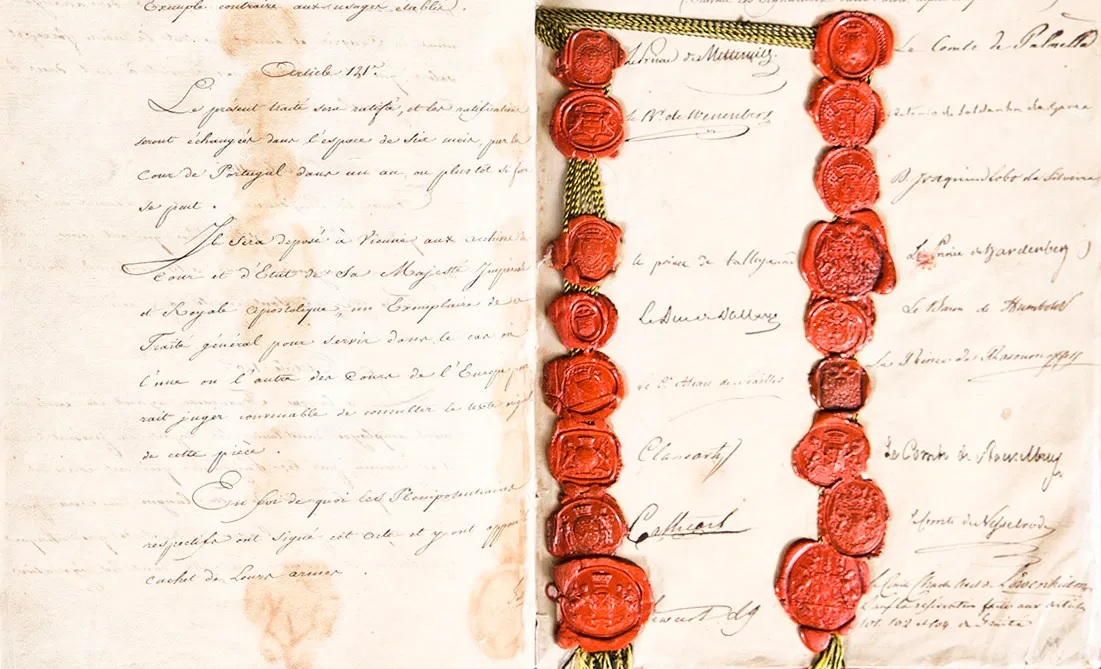 Exemple contraire aux usages établis.
Article 121.
Le présent traité sera ratifié, et les ratifications
seront échangées dans l'espace de six mois, par la
Cour de Portugal dans un an, ou plustôt si faire
se peut.
Il sera déposé à Vienne aux archives de
Cour et d'Etat de Sa Majesté Impériale
et Royale apostolique, un Exemplaire de ce
Traité général pour servir dans le cas où
l'une ou l'autre des Cours de l'Europe
rait juger convenable de consulter le texte original
de cette pièce.
En foi de quoi les Plénipotentiaires
respectifs ont signé cet acte et y ont apposé
cachet de Leurs armes.
Le Prince de Metternich
le Bn de Wessenberg
le prince de talleyrand
le Duc de Dalberg
Clancarty
Cathcart
Stewart LG
Le Comte de Palmella
Antonio de Saldanha da Gama
D. Joaquim Lobo da Silveira
Le Prince de Hardenberg
Le Baron de Humboldt
Le Prince de Rasoumoffsky
Le Comte de Nesselrode
Le Comte Charle Axel de Löwenhielm
101, 102 et 104 du Traité